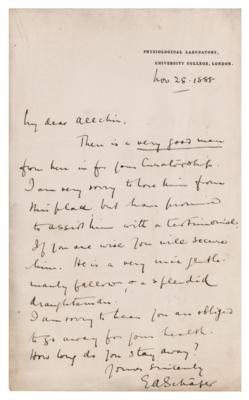 PHYSIOLOGICAL LABORATORY,
UNIVERSITY COLLEGE, LONDON.
Nov 28 - 1888
My dear Allchin,
There is a very good man
from here in for your Curatorship.
I am very sorry to lose him from
this place but have promised
to assist him with a testimonial.
If you are wise you will secure
him. He is a very nice gentle-
manly fellow, & a splendid
draughtsman.
I am sorry to hear you are obliged
to go away for your health.
How long do you stay away?
Yours sincerely
EASchäfer